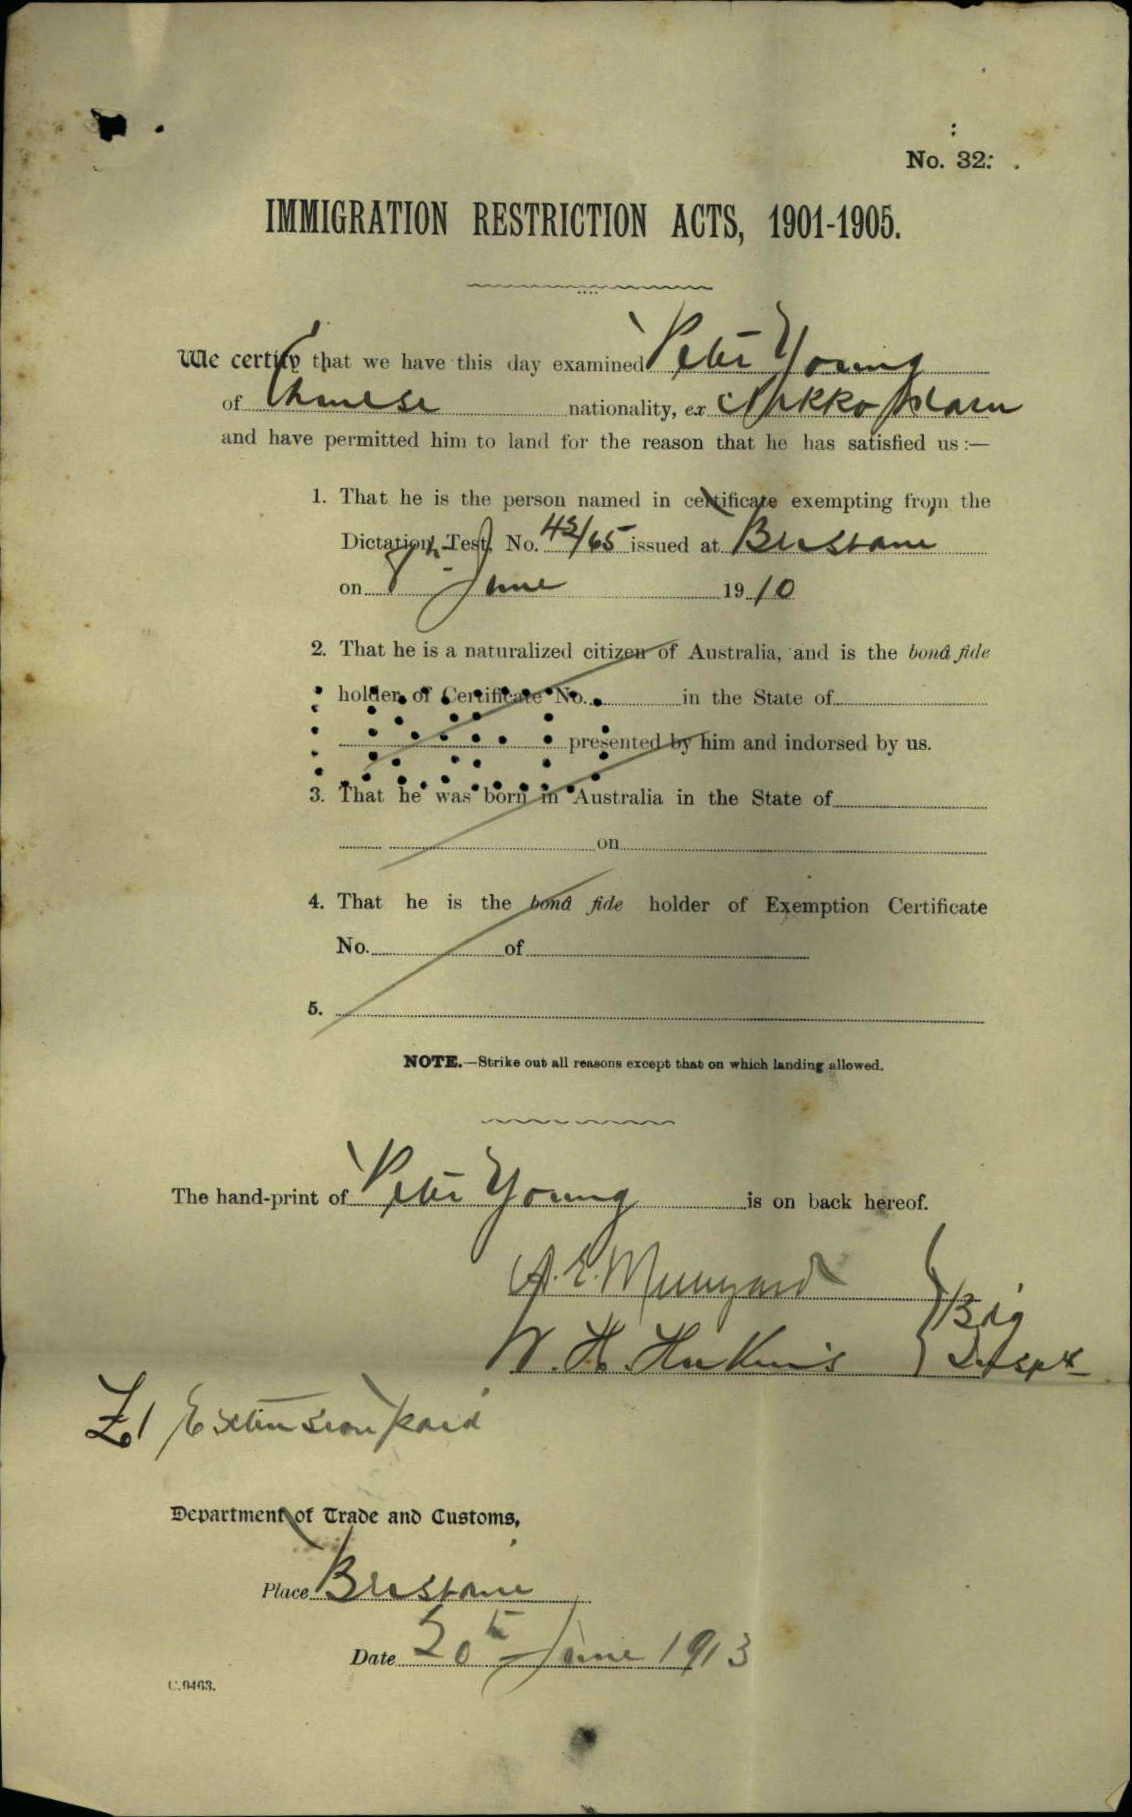 No. 32.
IMMIGRATION RESTRICTION ACTS, 1901-1905.
We certify that we have this day examined Peter Young
of Chinese nationality, ex Nikko Maru
and have permitted him to land for the reason that he has satisfied us:—
1. That he is the person named in certificate exempting from the
Dictation Test, No. 43/65 issued at Brisbane
on 8th June 1910
2. That he is a naturalized citizen of Australia, and is the bonâ fide
holder of Certificate No. in the State of
presented by him and indorsed by us.
3. That he was born in Australia in the State of
on
4. That he is the bonâ fide holder of Exemption Certificate
No. of
5.
NOTE.—Strike out all reasons except that on which landing allowed.
The hand-print of Peter Young is on back hereof.
A. E.
W. H.
£1 Extension paid
Department of Trade and Customs,
Place Brisbane
Date 20th June 1913
C.9463.